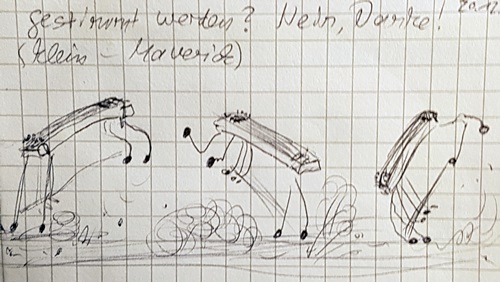 gestimmt werden? Nein, Danke!
(Klein - Maverick)